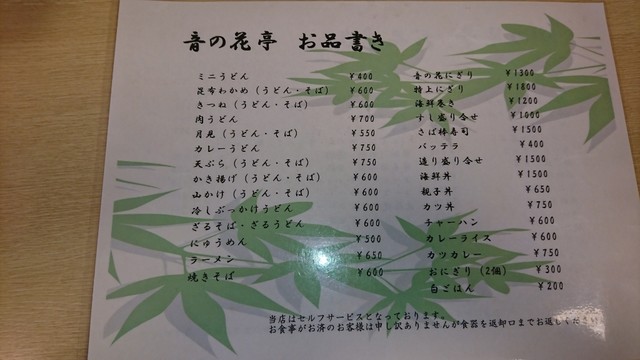 音の花亭 お品書き
ミニうどん ¥400
昆布わかめ(うどん・そば) ¥600
きつね(うどん・そば) ¥600
肉うどん ¥700
月見(うどん・そば) ¥550
カレーうどん ¥750
天ぷら(うどん・そば) ¥750
かき揚げ(うどん・そば) ¥600
山かけ(うどん・そば) ¥600
冷しぶっかけうどん ¥600
ざるそば・ざるうどん ¥600
にゅうめん ¥500
ラーメン ¥650
焼きそば ¥600
音の花にぎり ¥1300
特上にぎり ¥1800
海鮮巻き ¥1200
すし盛り合せ ¥1000
さば棒寿司 ¥1500
バッテラ ¥400
造り盛り合せ ¥1500
海鮮丼 ¥1500
親子丼 ¥650
カツ丼 ¥750
チャーハン ¥600
カレーライス ¥600
カツカレー ¥750
おにぎり(2個) ¥300
白ごはん ¥200
当店はセルフサービスとなっております。
お食事がお済のお客様は申し訳ありませんが食器を返却口までお返しください